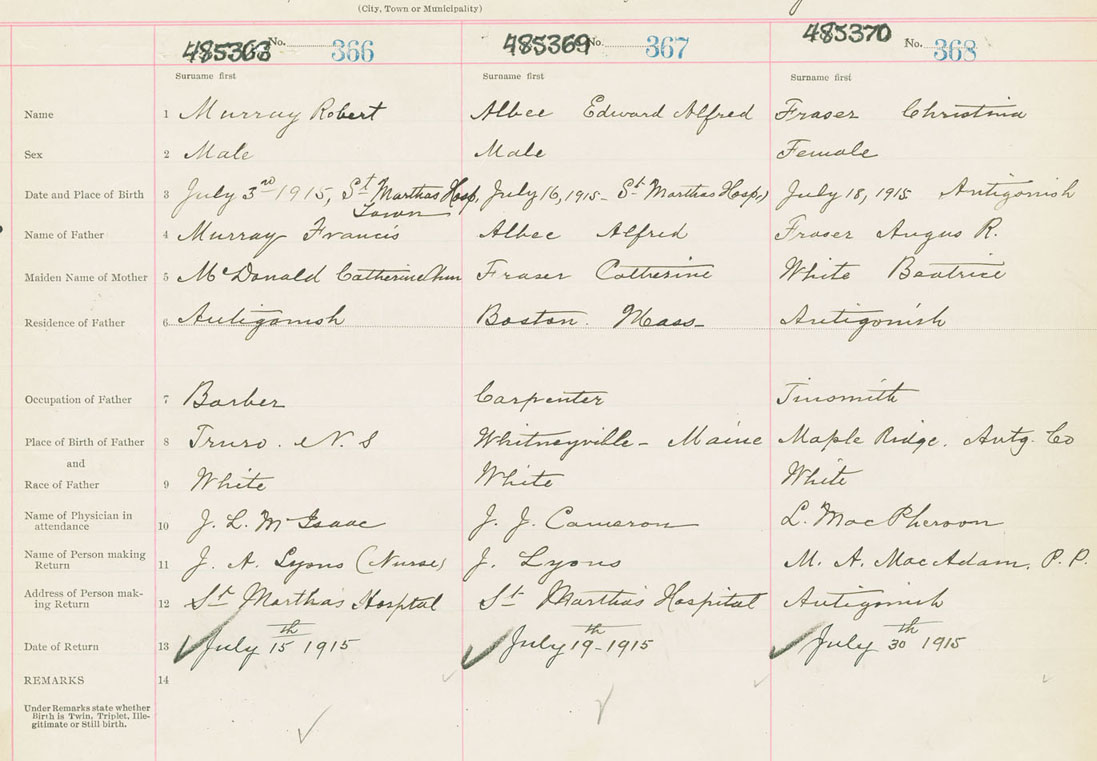 (City, Town or Municipality)
No. 366 485369 No. 367 485370 No. 368
Surname first Surname first Surname first
Name 1 Murray Robert Albee Edward Alfred Fraser Christina
Sex 2 Male Male Female
Date and Place of Birth 3 July 3rd 1915, St Marthas Hosp, July 16, 1915- St Marthas Hosp, July 18, 1915 Antigonish
Town
Name of Father 4 Murray Francis Albee Alfred Fraser Angus R.
Maiden Name of Mother 5 McDonald Catherine Ann Fraser Catherine White Beatrice
Residence of Father 6 Antigonish Boston. Mass- Antigonish
Occupation of Father 7 Barber Carpenter Tinsmith
Place of Birth of Father 8 Truro. N. S Whitneyville - Maine Maple Ridge. Antg. Co
and
Race of Father 9 White White White
Name of Physician in
attendance 10 J. L. McIsaac J. J. Cameron L. MacPherson
Name of Person making
Return 11 J. A. Lyons (Nurse) J. Lyons M. A. MacAdam. P. P.
Address of Person mak-
ing Return 12 St Martha's Hosptal St Martha's Hospital Antigonish
Date of Return 13 July 15th 1915 July 19th-1915 July 30th 1915
REMARKS 14
Under Remarks state whether
Birth is Twin, Triplet, Ille-
gitimate or Still birth.